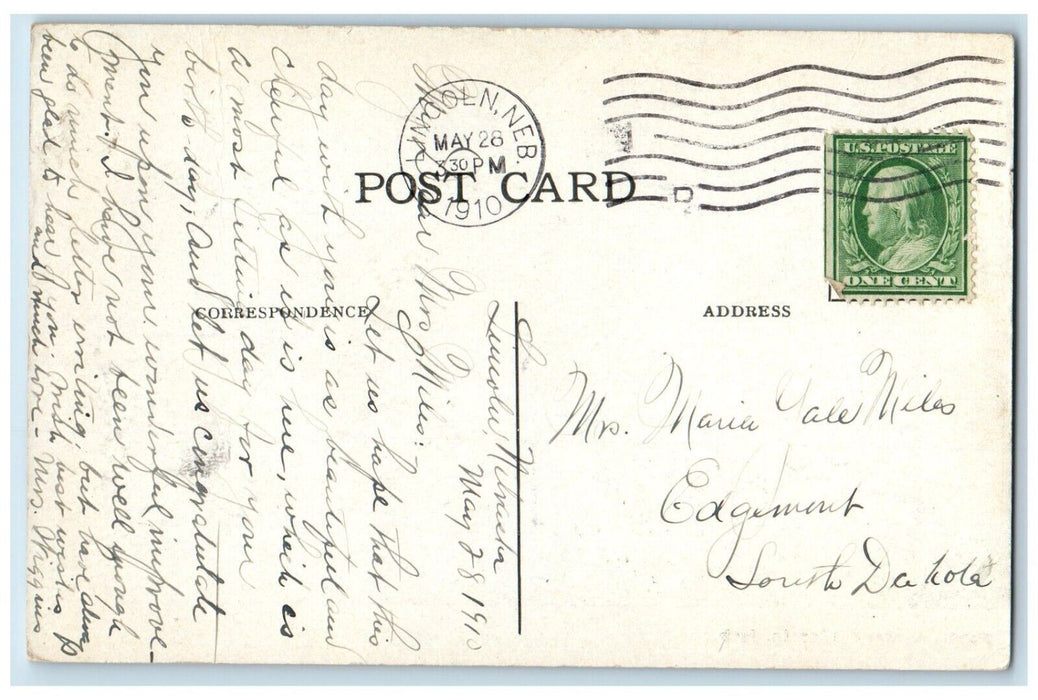 LINCOLN, NEB.
MAY 28
3 30 PM
1910
U.S. POSTAGE
ONE CENT
POST CARD
CORRESPONDENCE
ADDRESS
Mrs. Maria Gale Miles
Edgemont
South Dakota
Lincoln, Nebraska
May 28 1910
My Dear Mrs. Miles:
Let us hope that this
day with you is as beautiful and
cheerful as it is here, which is
a most fitting day for your
birth day; And let us congratulate
you upon your wonderful improve-
ment. I have not been well enough
to do much letter writing, but have always
been glad to hear from you. With best wishes
and much love - Mrs. Higgins